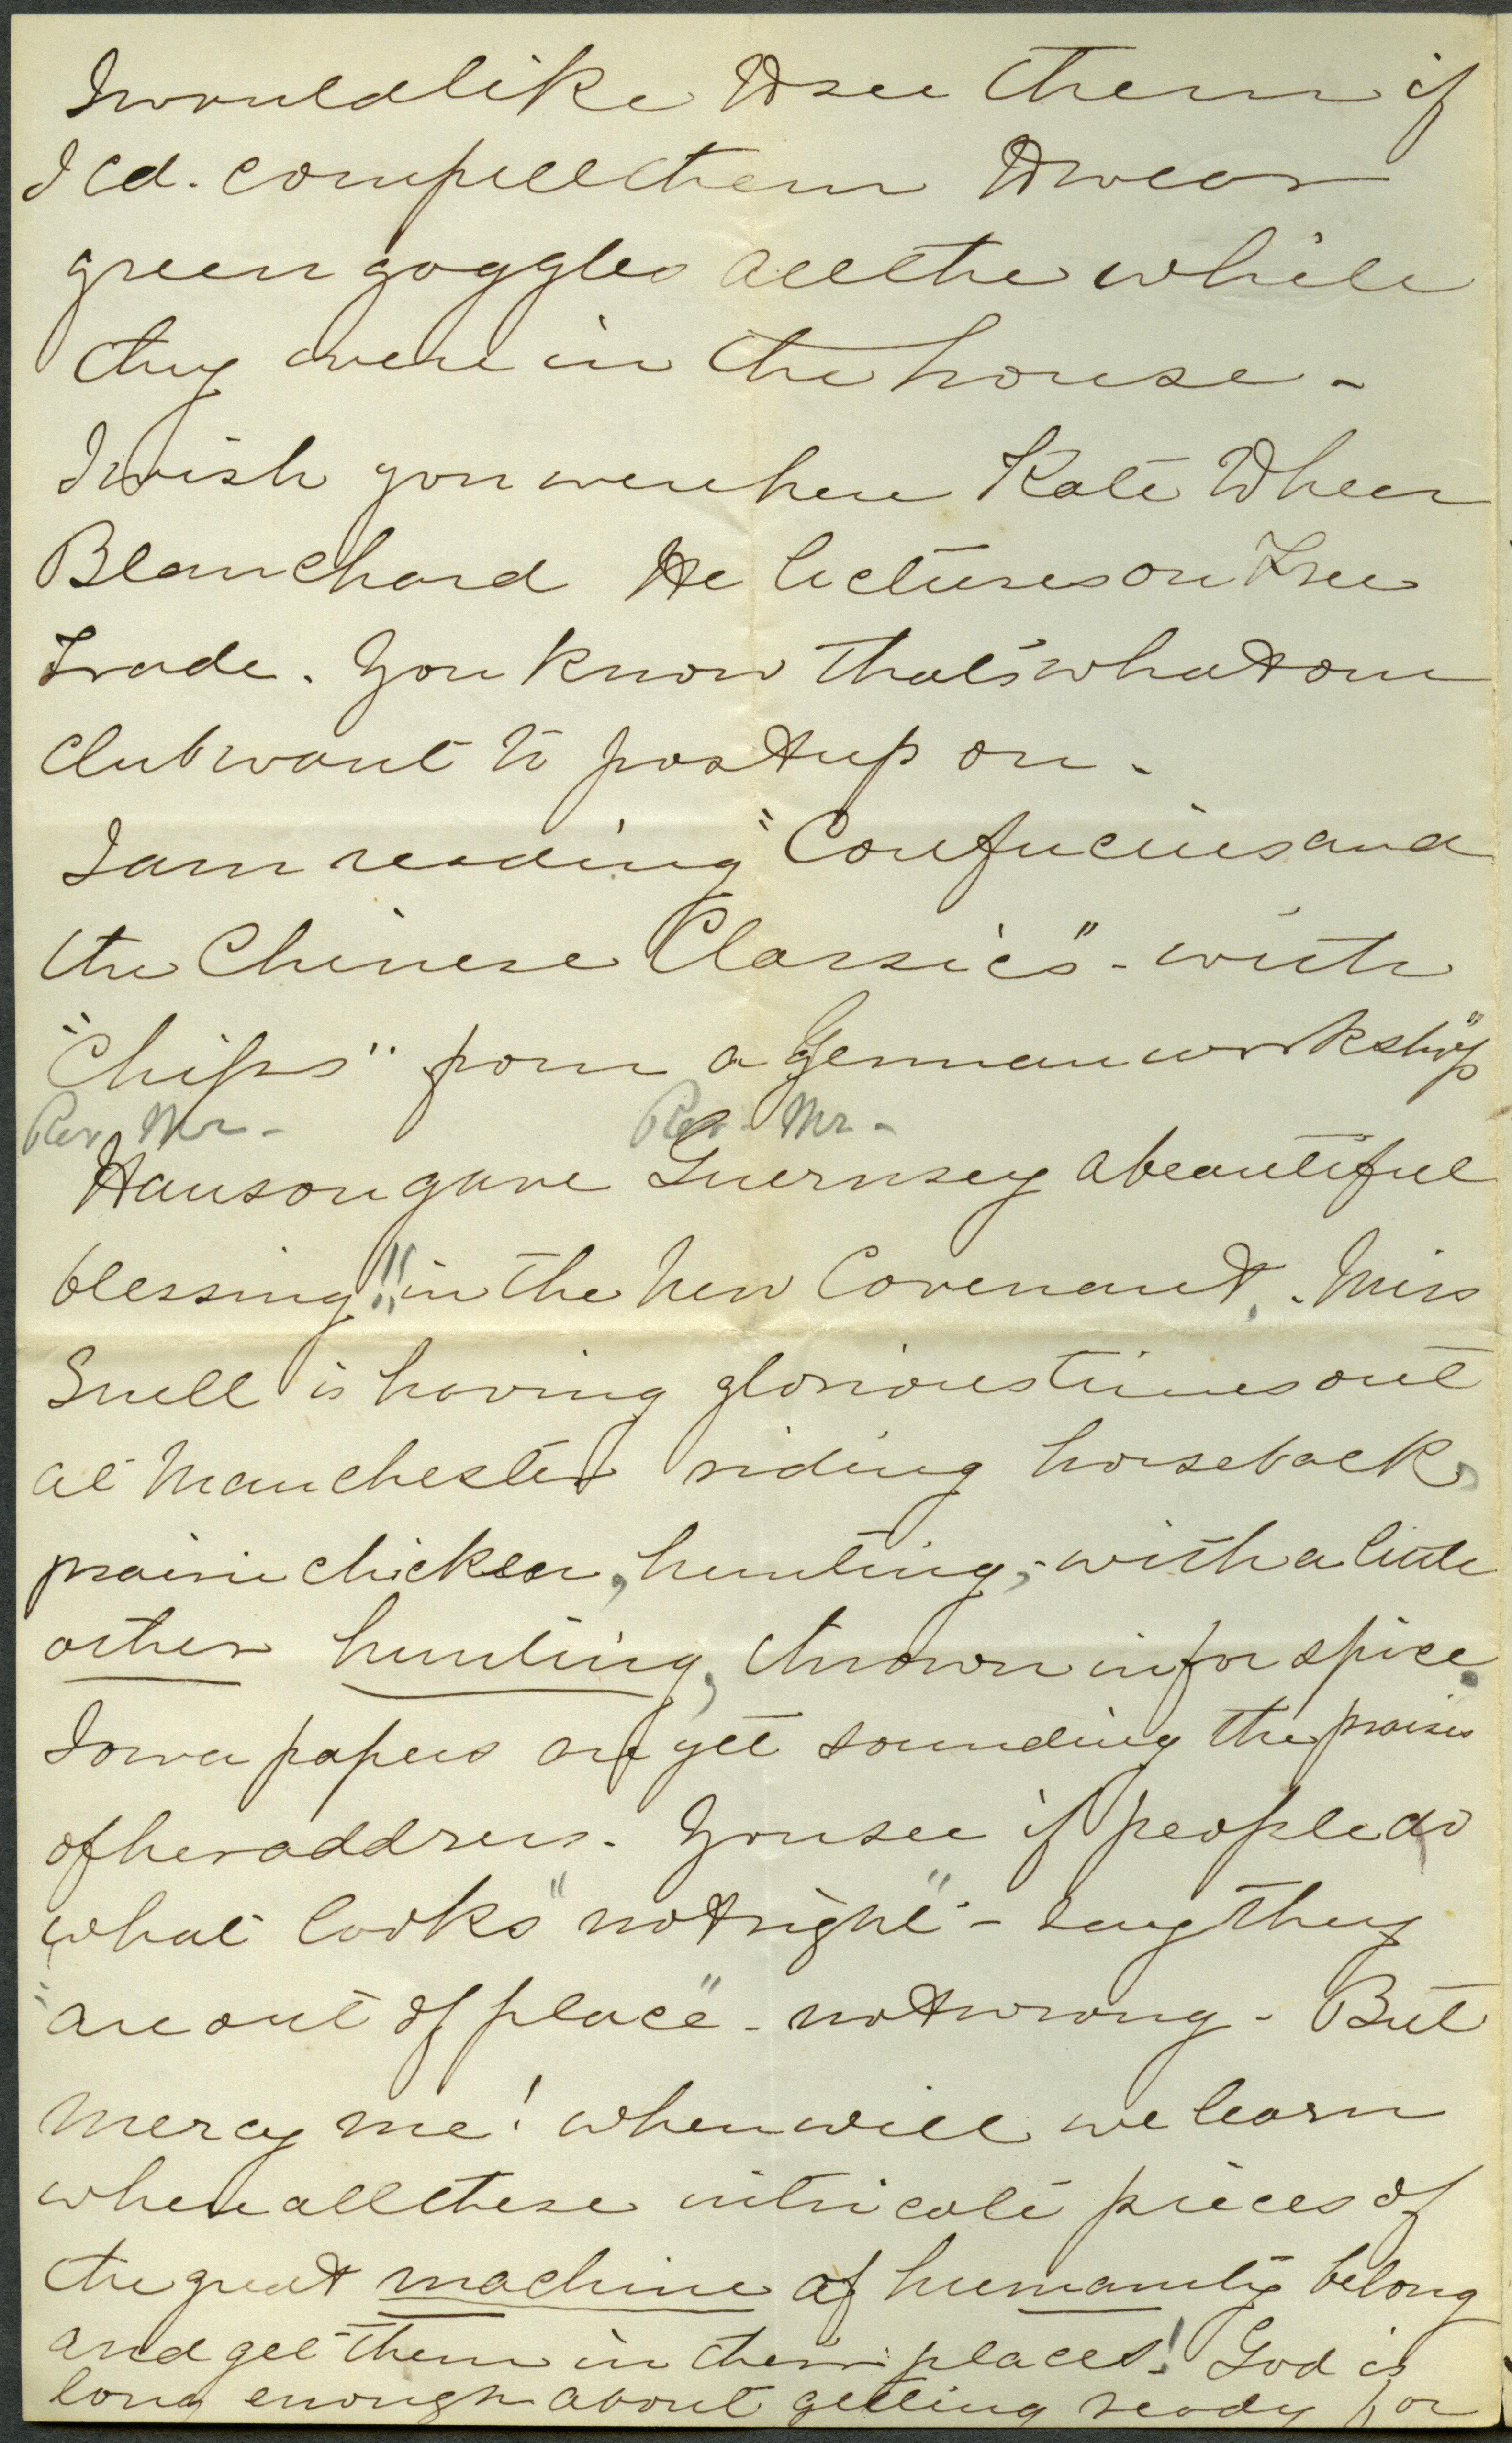 I would like to see them if
I cd. compell them to wear
green goggles all the while
they were in the house -
I wish you were here Kate to hear
Blanchard He lectures on Free
Trade. You know that's what our
club want to post up on -
I am reading "Confucius and
the Chinese Classics" - with
"Chips" from a German workshop"
Rev. Mr - Rev. Mr -
Hanson gave Guernsey a beautiful
blessing!! in the New Covenant, . Miss
Snell is having glorious times out
at Manchester riding horseback,
prairie chicken, hunting, - with a little
other hunting, thrown in for spice.
Iowa papers are yet sounding the praises
of her address - You see if people do
what looks "not right" - say they
"are out of place" - not wrong - But
mercy me! when will we learn
where all these intricate pieces of
the great machine of humanity belong
and get them in their places! God is
long enough about getting ready for